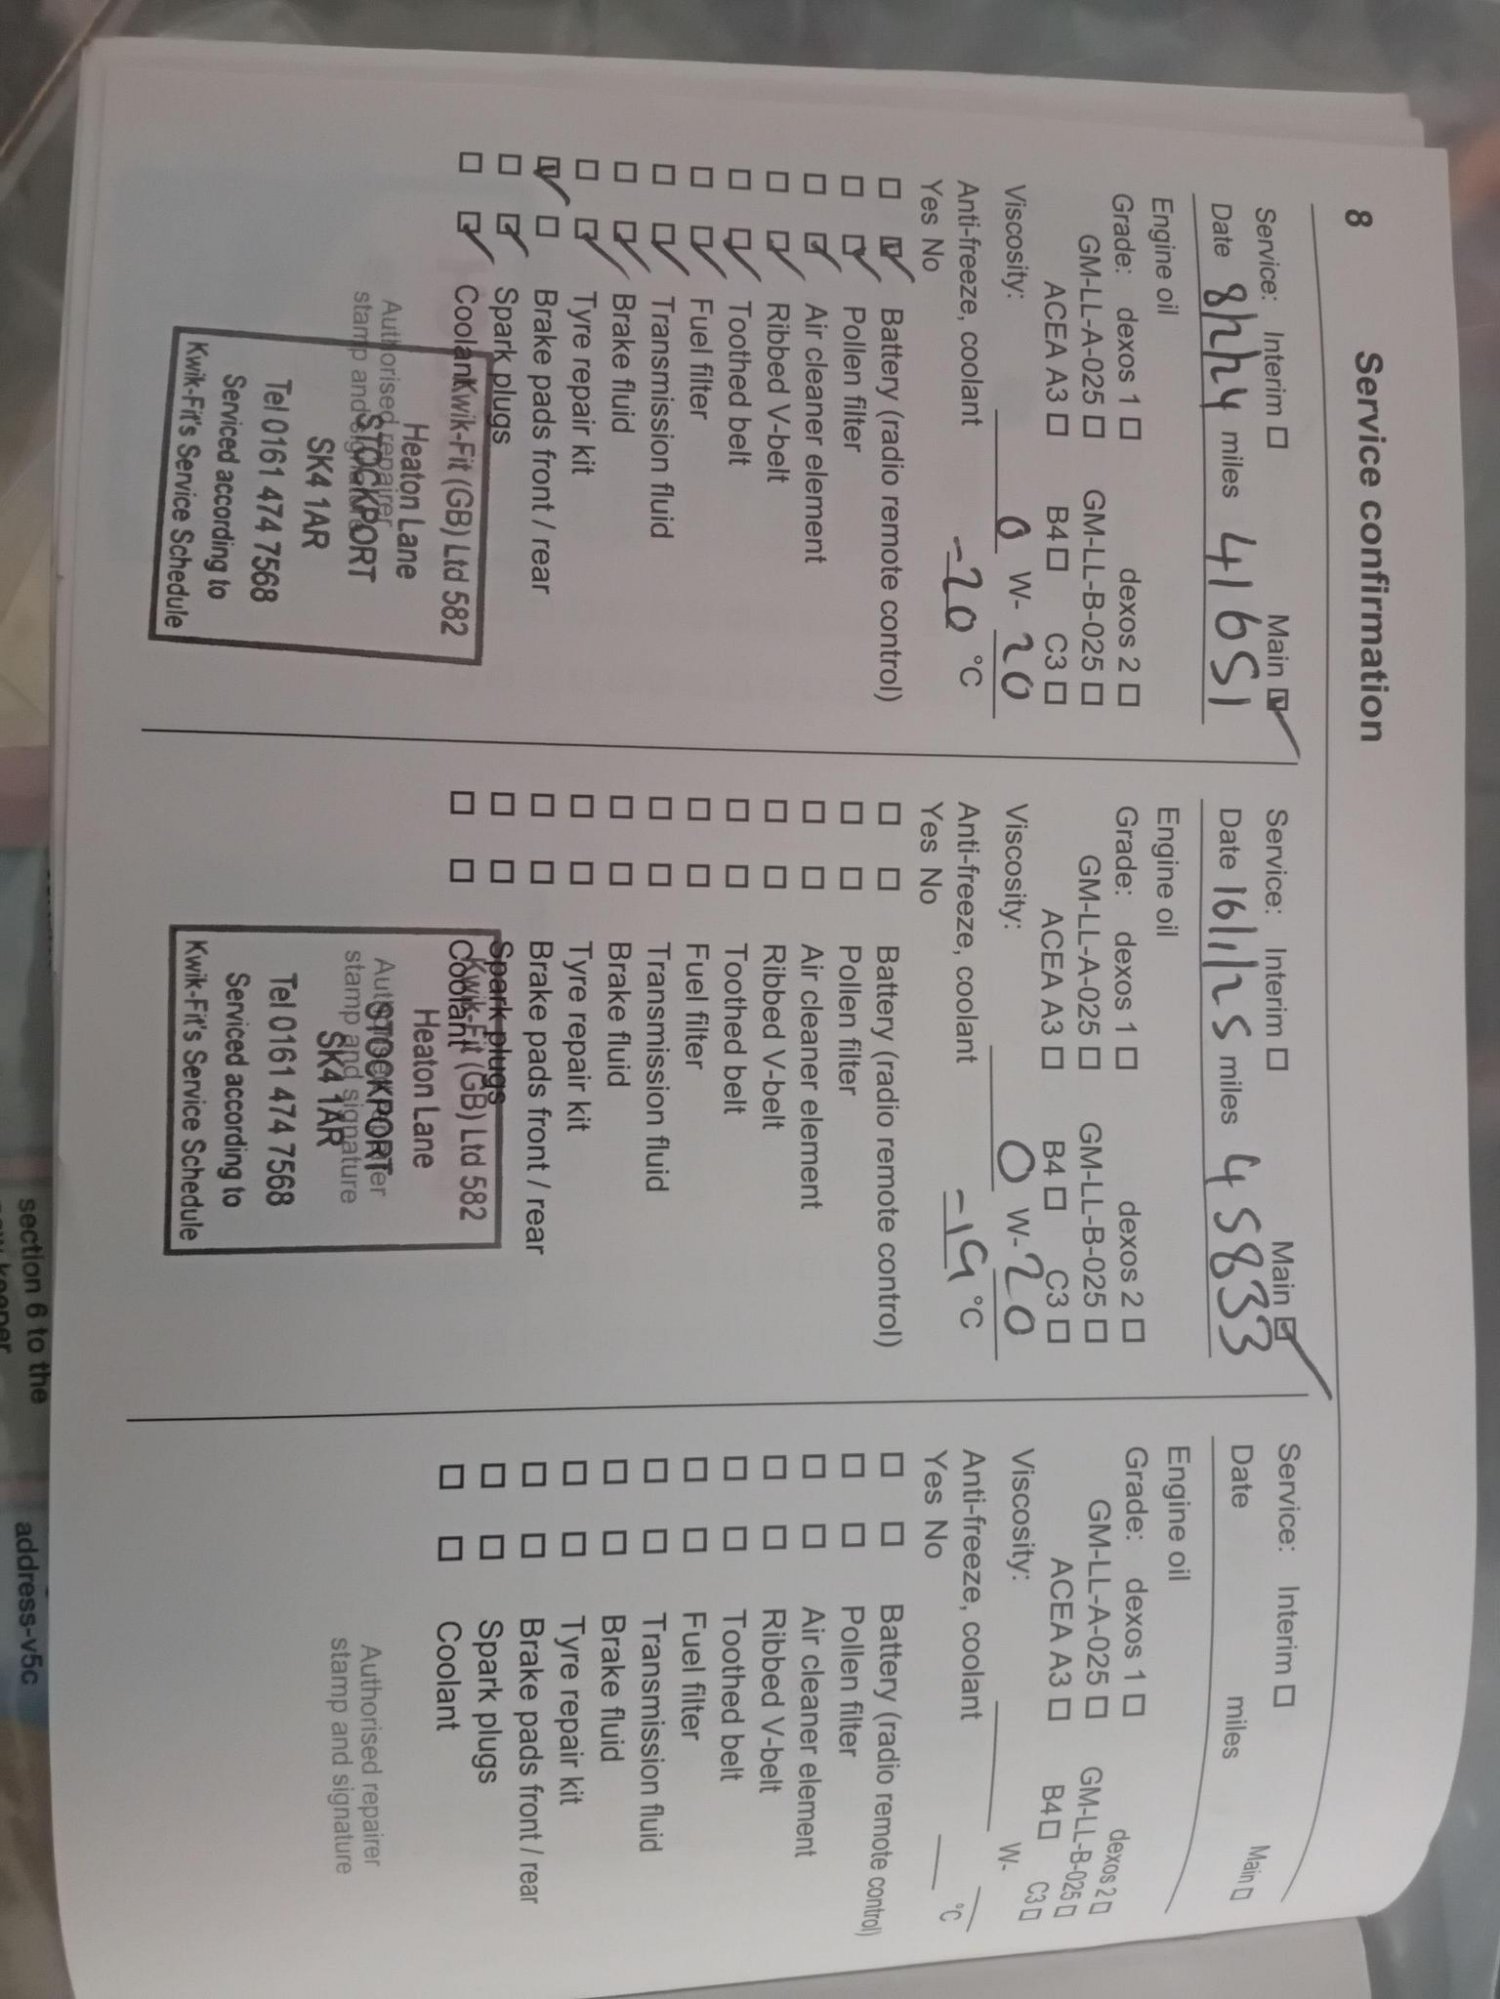 8 Service confirmation
Service: Interim ☐ Main ☑
Date 8/1/24 miles 41651
Engine oil
Grade: dexos 1 ☐ dexos 2 ☐
GM-LL-A-025 ☐ GM-LL-B-025 ☐
ACEA A3 ☐ B4 ☐ C3 ☐
Viscosity: 0 W- 20
Anti-freeze, coolant -20 °C
Yes No
☐ ☑ Battery (radio remote control)
☐ ☑ Pollen filter
☐ ☑ Air cleaner element
☐ ☑ Ribbed V-belt
☐ ☑ Toothed belt
☐ ☑ Fuel filter
☐ ☑ Transmission fluid
☐ ☑ Brake fluid
☐ ☑ Tyre repair kit
☑ ☐ Brake pads front / rear
☐ ☑ Spark plugs
☐ ☑ Coolant
Authorised repairer
stamp and signature
Kwik-Fit (GB) Ltd 582
Heaton Lane
STOCKPORT
SK4 1AR
Tel 0161 474 7568
Serviced according to
Kwik-Fit's Service Schedule
Service: Interim ☐ Main ☑
Date 16/1/25 miles 45833
Engine oil
Grade: dexos 1 ☐ dexos 2 ☐
GM-LL-A-025 ☐ GM-LL-B-025 ☐
ACEA A3 ☐ B4 ☐ C3 ☐
Viscosity: 0 W- 20
Anti-freeze, coolant -19 °C
Yes No
☐ ☐ Battery (radio remote control)
☐ ☐ Pollen filter
☐ ☐ Air cleaner element
☐ ☐ Ribbed V-belt
☐ ☐ Toothed belt
☐ ☐ Fuel filter
☐ ☐ Transmission fluid
☐ ☐ Brake fluid
☐ ☐ Tyre repair kit
☐ ☐ Brake pads front / rear
☐ ☐ Spark plugs
☐ ☐ Coolant
Authorised repairer
stamp and signature
Kwik-Fit (GB) Ltd 582
Heaton Lane
STOCKPORT
SK4 1AR
Tel 0161 474 7568
Serviced according to
Kwik-Fit's Service Schedule
Service: Interim ☐ Main ☐
Date miles
Engine oil
Grade: dexos 1 ☐ dexos 2 ☐
GM-LL-A-025 ☐ GM-LL-B-025 ☐
ACEA A3 ☐ B4 ☐ C3 ☐
Viscosity: W-
Anti-freeze, coolant °C
Yes No
☐ ☐ Battery (radio remote control)
☐ ☐ Pollen filter
☐ ☐ Air cleaner element
☐ ☐ Ribbed V-belt
☐ ☐ Toothed belt
☐ ☐ Fuel filter
☐ ☐ Transmission fluid
☐ ☐ Brake fluid
☐ ☐ Tyre repair kit
☐ ☐ Brake pads front / rear
☐ ☐ Spark plugs
☐ ☐ Coolant
Authorised repairer
stamp and signature
section 6 to the
keeper
address-v5c